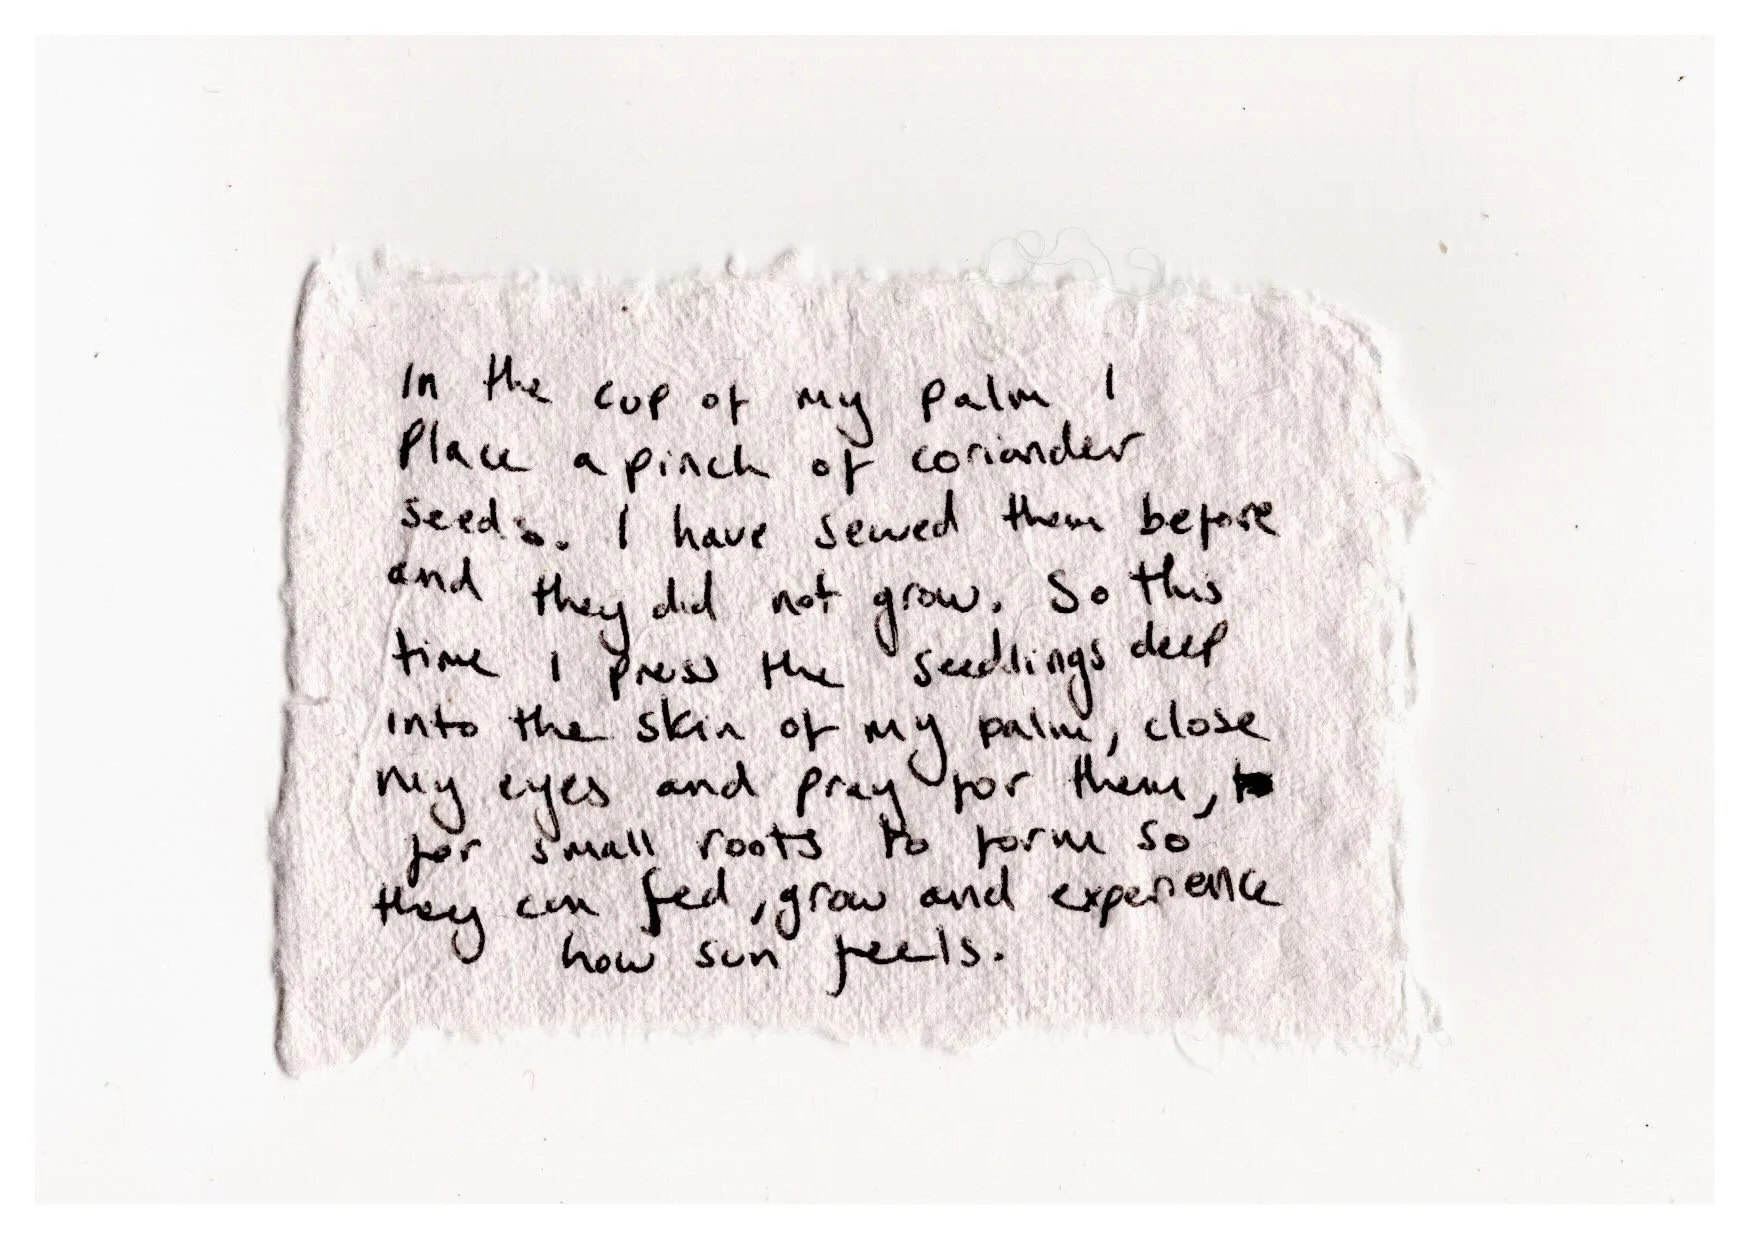 In the cup of my palm I
Place a pinch of coriander
seeds. I have sewed them before
and they did not grow. So this
time I press the seedlings deep
into the skin of my palm, close
my eyes and pray for them,
for small roots to form so
they can fed, grow and experience
how sun feels.